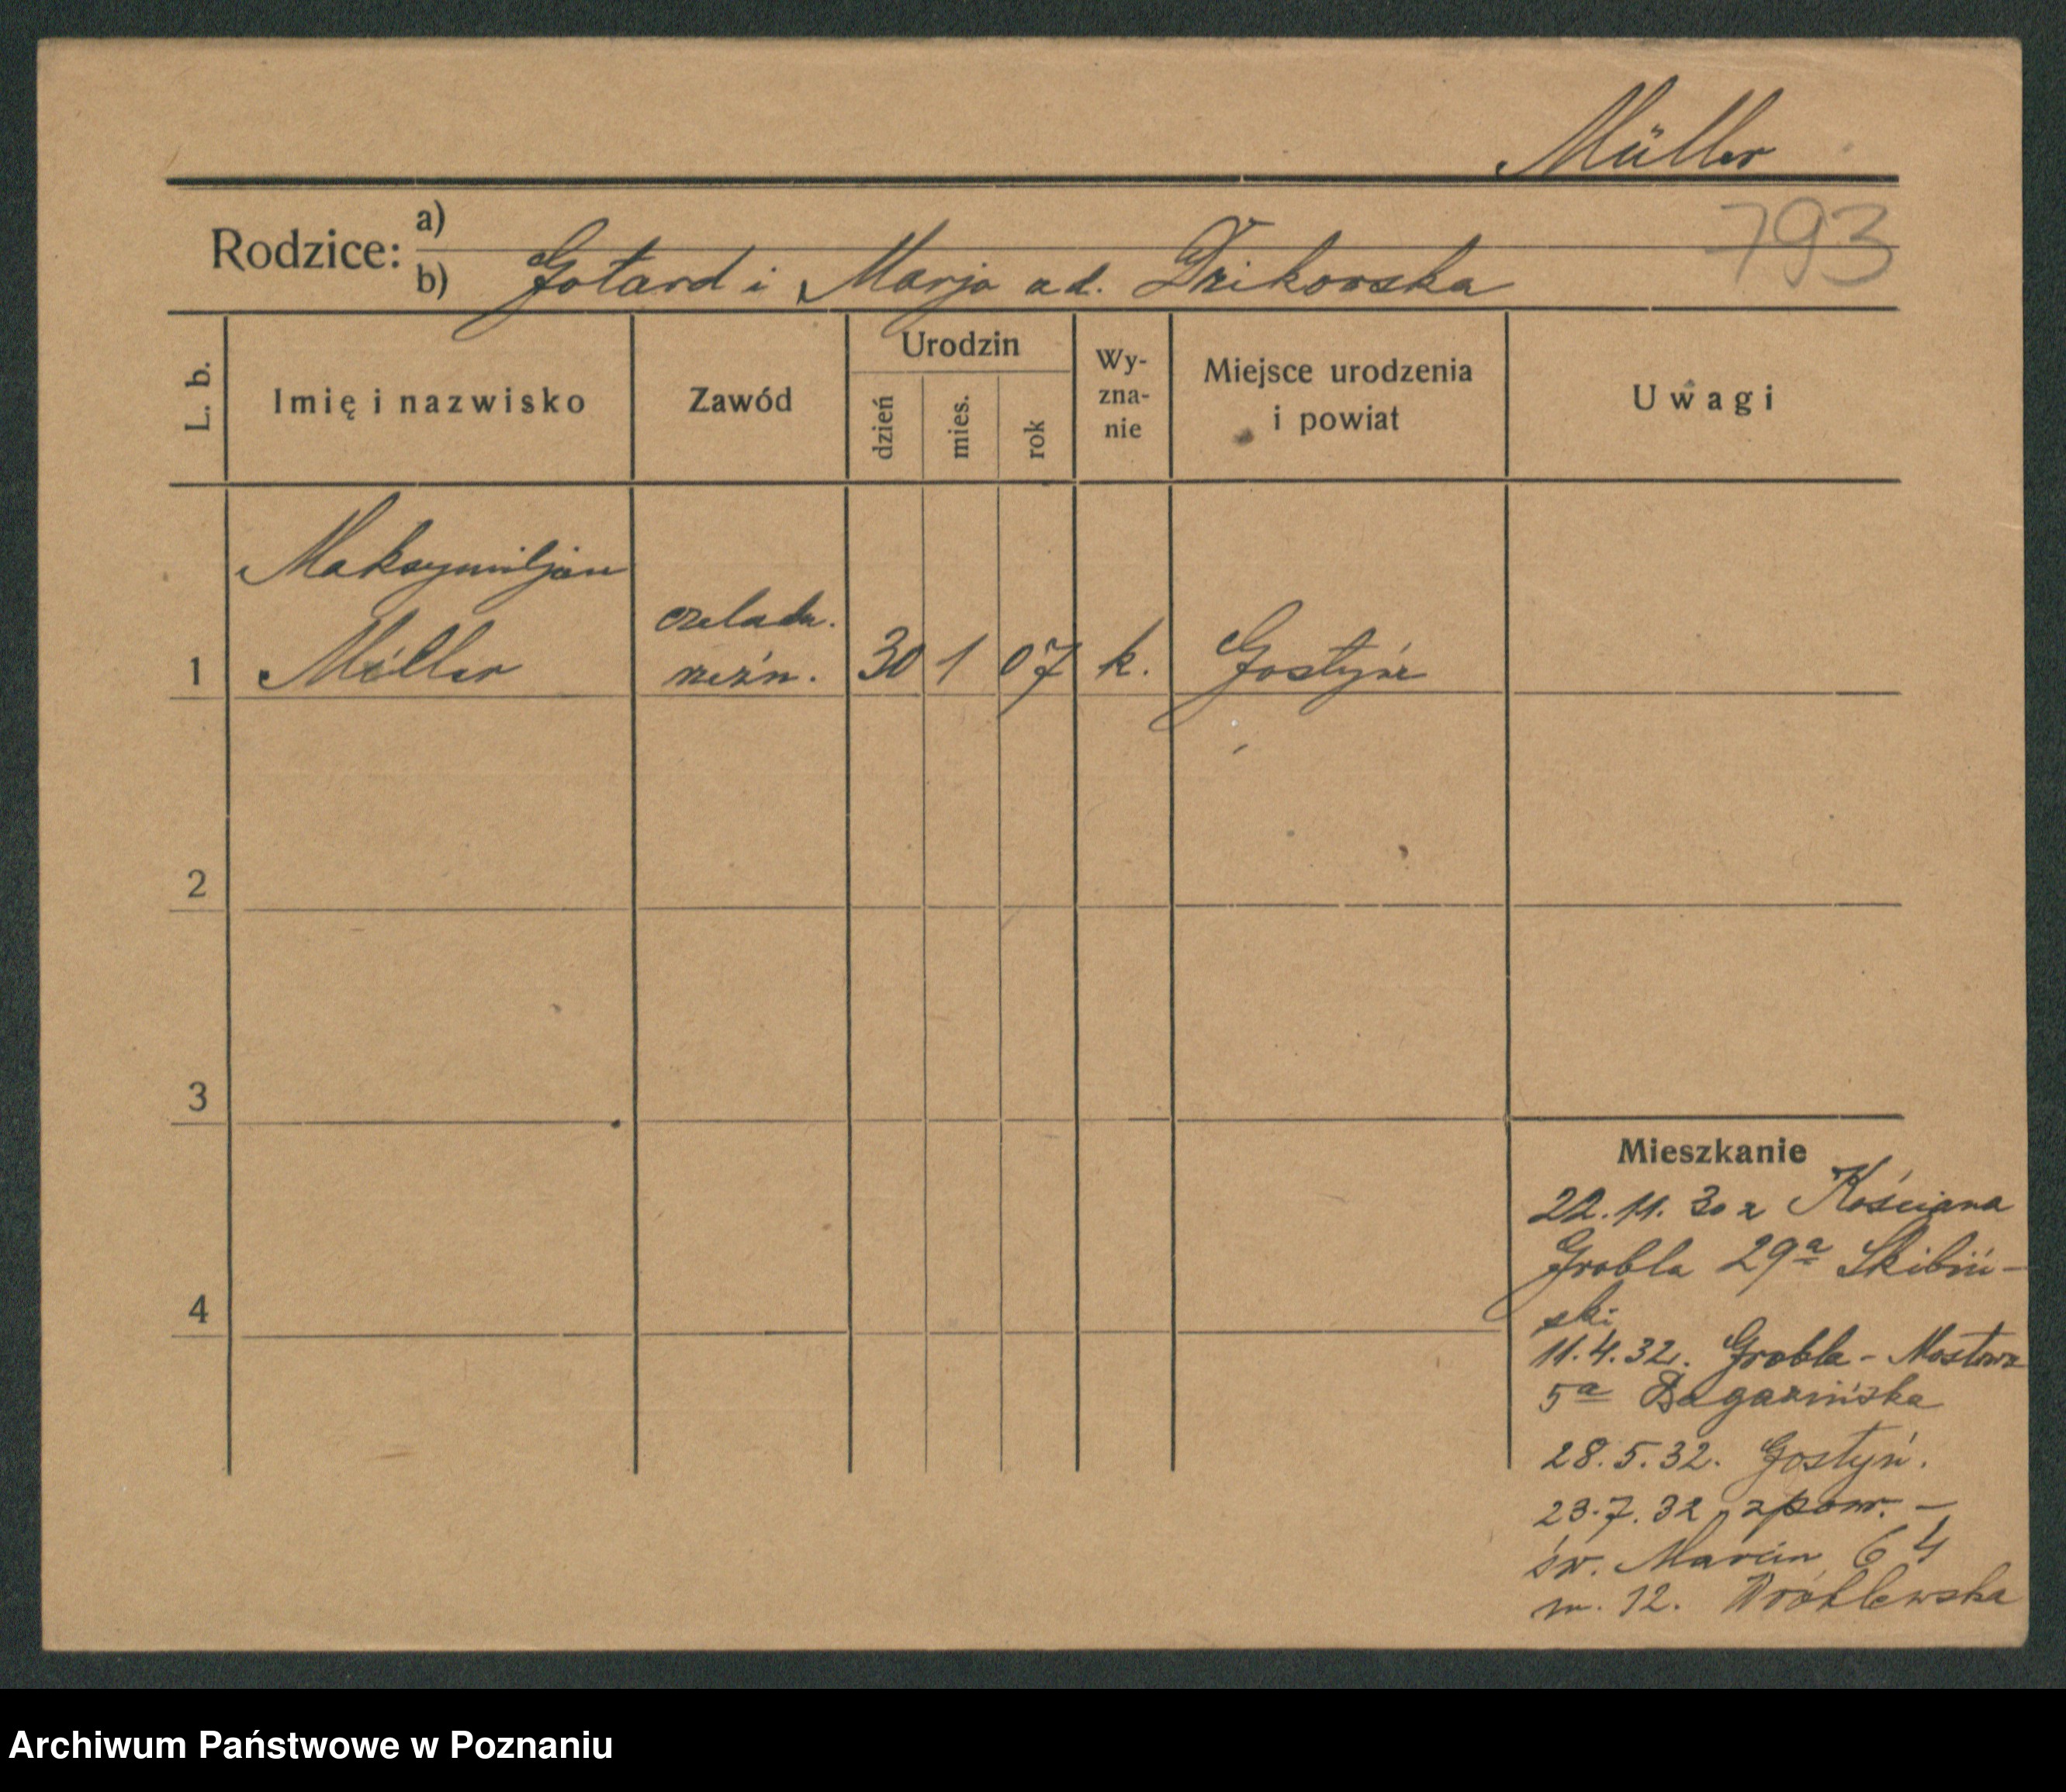 Müller
793
Rodzice: a)
b) Gotard i Marja ud. Dzikowska
L. b.
Imię i nazwisko
Zawód
Urodzin
dzień
mies.
rok
Wy-
zna-
nie
Miejsce urodzenia
i powiat
Uwagi
Maksymiljan
Müller
czeladn.
rzeźn.
1
30 1 07 k. Gostyń
2
3
4
Mieszkanie
22.11.30 z Kościana
Grobla 29a Skibiń-
ski
11.4.32. Grobla - Mostowa
5a
28.5.32. Gostyń.
23.7.32 zpow. -
św. Marcin 64
m. 12. Wróblewska
Archiwum Państwowe w Poznaniu